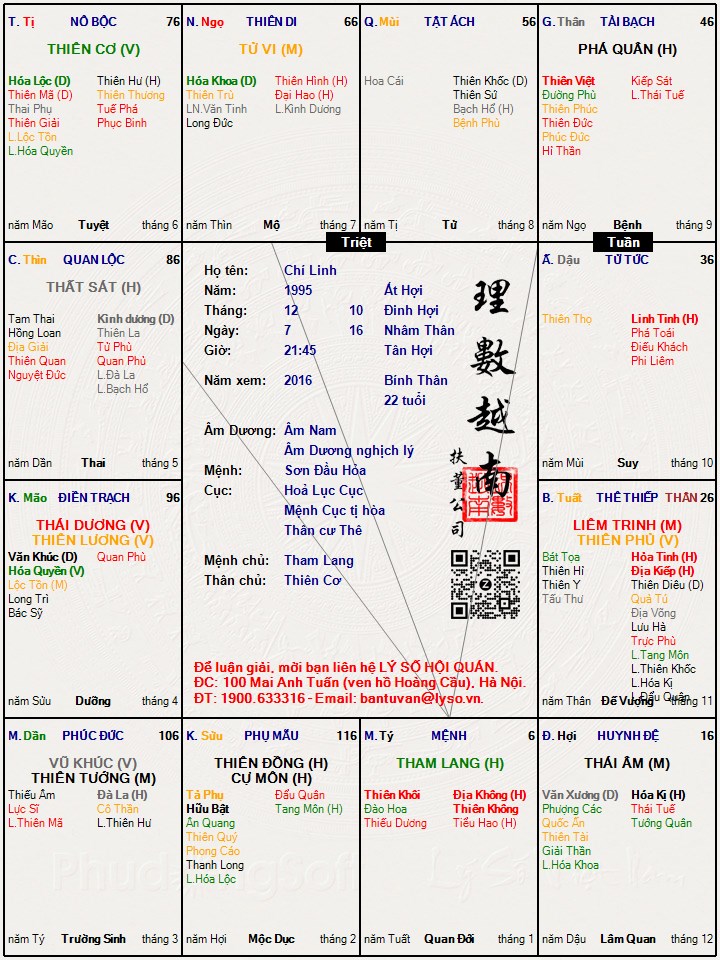 T. Tị NÔ BỘC 76
THIÊN CƠ (V)
Hóa Lộc (D) Thiên Hư (H)
Thiên Mã (D) Thiên Thương
Thai Phụ Tuế Phá
Thiên Giải Phục Binh
L.Lộc Tồn
L.Hóa Quyền
năm Mão Tuyệt tháng 6
N. Ngọ THIÊN DI 66
TỬ VI (M)
Hóa Khoa (D) Thiên Hình (H)
Thiên Trù Đại Hao (H)
LN.Văn Tinh L.Kình Dương
Long Đức
năm Thìn Mộ tháng 7
Q. Mùi TẬT ÁCH 56
Hoa Cái Thiên Khốc (D)
Thiên Sứ
Bạch Hổ (H)
Bệnh Phù
năm Tị Tử tháng 8
G. Thân TÀI BẠCH 46
PHÁ QUÂN (H)
Thiên Việt Kiếp Sát
Đường Phù L.Thái Tuế
Thiên Phúc
Thiên Đức
Phúc Đức
Hỉ Thần
năm Ngọ Bệnh tháng 9
Triệt
Tuần
C. Thìn QUAN LỘC 86
THẤT SÁT (H)
Tam Thai Kình dương (D)
Hồng Loan Thiên La
Địa Giải Tử Phù
Thiên Quan Quan Phủ
Nguyệt Đức L.Đà La
L.Bạch Hổ
năm Dần Thai tháng 5
Họ tên: Chí Linh
Năm: 1995 Ất Hợi
Tháng: 12 10 Đinh Hợi
Ngày: 7 16 Nhâm Thân
Giờ: 21:45 Tân Hợi
Năm xem: 2016 Bính Thân
22 tuổi
Âm Dương: Âm Nam
Âm Dương nghịch lý
Mệnh: Sơn Đầu Hỏa
Cục: Hoả Lục Cục
Mệnh Cục tị hòa
Thân cư Thê
Mệnh chủ: Tham Lang
Thân chủ: Thiên Cơ
理數越南
扶董公司
Để luận giải, mời bạn liên hệ LÝ SỐ HỘI QUÁN.
ĐC: 100 Mai Anh Tuấn (ven hồ Hoàng Cầu), Hà Nội.
ĐT: 1900.633316 - Email: bantuvan@lyso.vn.
Ấ. Dậu TỬ TỨC 36
Thiên Thọ Linh Tinh (H)
Phá Toái
Điếu Khách
Phi Liêm
năm Mùi Suy tháng 10
K. Mão ĐIỀN TRẠCH 96
THÁI DƯƠNG (V)
THIÊN LƯƠNG (V)
Văn Khúc (D) Quan Phù
Hóa Quyền (V)
Lộc Tồn (M)
Long Trì
Bác Sỹ
năm Sửu Dưỡng tháng 4
B. Tuất THÊ THIẾP THÂN 26
LIÊM TRINH (M)
THIÊN PHỦ (V)
Bát Tọa Hỏa Tinh (H)
Thiên Hỉ Địa Kiếp (H)
Thiên Y Thiên Diêu (D)
Tấu Thư Quả Tú
Địa Võng
Lưu Hà
Trực Phù
L.Tang Môn
L.Thiên Khốc
L.Hóa Kị
L.Đẩu Quân
năm Thân Đế Vượng tháng 11
M. Dần PHÚC ĐỨC 106
VŨ KHÚC (V)
THIÊN TƯỚNG (M)
Thiếu Âm Đà La (H)
Lực Sĩ Cô Thần
L.Thiên Mã L.Thiên Hư
năm Tý Trường Sinh tháng 3
K. Sửu PHỤ MẪU 116
THIÊN ĐỒNG (H)
CỰ MÔN (H)
Tả Phụ Đẩu Quân
Hữu Bật Tang Môn (H)
Ân Quang
Thiên Quý
Phong Cáo
Thanh Long
L.Hóa Lộc
năm Hợi Mộc Dục tháng 2
M. Tý MỆNH 6
THAM LANG (H)
Thiên Khôi Địa Không (H)
Đào Hoa Thiên Không
Thiếu Dương Tiểu Hao (H)
năm Tuất Quan Đới tháng 1
Đ. Hợi HUYNH ĐỆ 16
THÁI ÂM (M)
Văn Xương (D) Hóa Kị (H)
Phượng Các Thái Tuế
Quốc Ấn Tướng Quân
Thiên Tài
Giải Thần
L.Hóa Khoa
năm Dậu Lâm Quan tháng 12